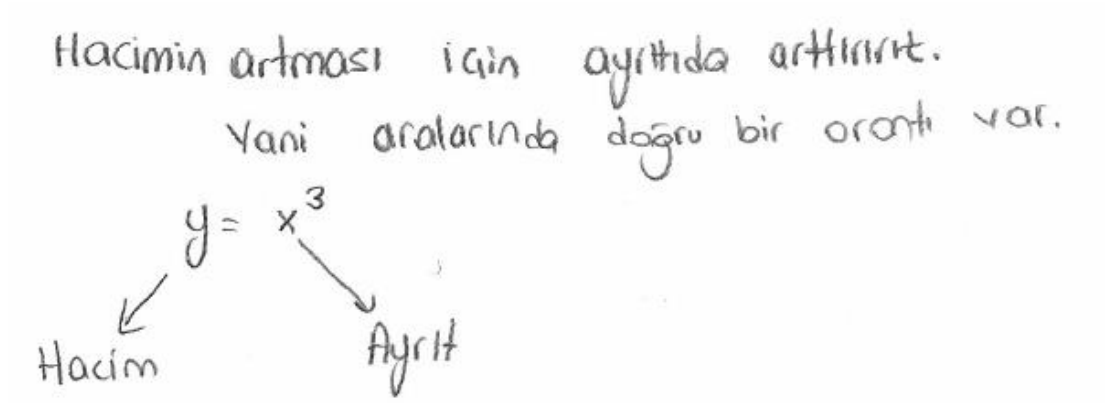 Hacimin artması için ayrıtıda arttırırıt.
Yani aralarında doğru bir orantı var.
y = x³
Hacim Ayrıt